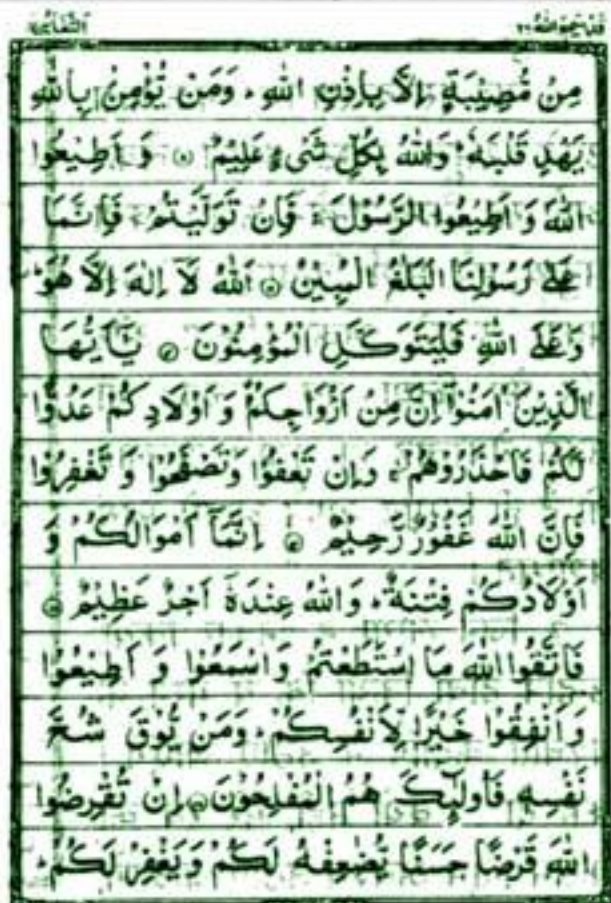 قد سمع الله ٢٨ التغابن ٦٤
مِنْ مُّصِيْبَةٍ اِلَّا بِاِذْنِ اللّٰهِ ؕ وَمَنْ يُّؤْمِنْۢ بِاللّٰهِ
يَهْدِ قَلْبَهٗ ؕ وَاللّٰهُ بِكُلِّ شَیْءٍ عَلِيْمٌ ۝ وَ اَطِيْعُوا
اللّٰهَ وَ اَطِيْعُوا الرَّسُوْلَ ۚ فَاِنْ تَوَلَّيْتُمْ فَاِنَّمَا
عَلٰى رَسُوْلِنَا الْبَلٰغُ الْمُبِيْنُ ۝ اَللّٰهُ لَاۤ اِلٰهَ اِلَّا هُوَ ؕ
وَ عَلَى اللّٰهِ فَلْيَتَوَكَّلِ الْمُؤْمِنُوْنَ ۝ يٰۤاَيُّهَا
الَّذِيْنَ اٰمَنُوْۤا اِنَّ مِنْ اَزْوَاجِكُمْ وَ اَوْلَادِكُمْ عَدُوًّا
لَّكُمْ فَاحْذَرُوْهُمْ ۚ وَاِنْ تَعْفُوْا وَتَصْفَحُوْا وَ تَغْفِرُوْا
فَاِنَّ اللّٰهَ غَفُوْرٌ رَّحِيْمٌ ۝ اِنَّمَاۤ اَمْوَالُكُمْ وَ
اَوْلَادُكُمْ فِتْنَةٌ ؕ وَاللّٰهُ عِنْدَهٗۤ اَجْرٌ عَظِيْمٌ ۝
فَاتَّقُوا اللّٰهَ مَا اسْتَطَعْتُمْ وَاسْمَعُوْا وَ اَطِيْعُوْا
وَاَنْفِقُوْا خَيْرًا لِّاَنْفُسِكُمْ ؕ وَمَنْ يُّوْقَ شُحَّ
نَفْسِهٖ فَاُولٰٓئِكَ هُمُ الْمُفْلِحُوْنَ ۝ اِنْ تُقْرِضُوا
اللّٰهَ قَرْضًا حَسَنًا يُّضٰعِفْهُ لَكُمْ وَيَغْفِرْ لَكُمْ ؕ